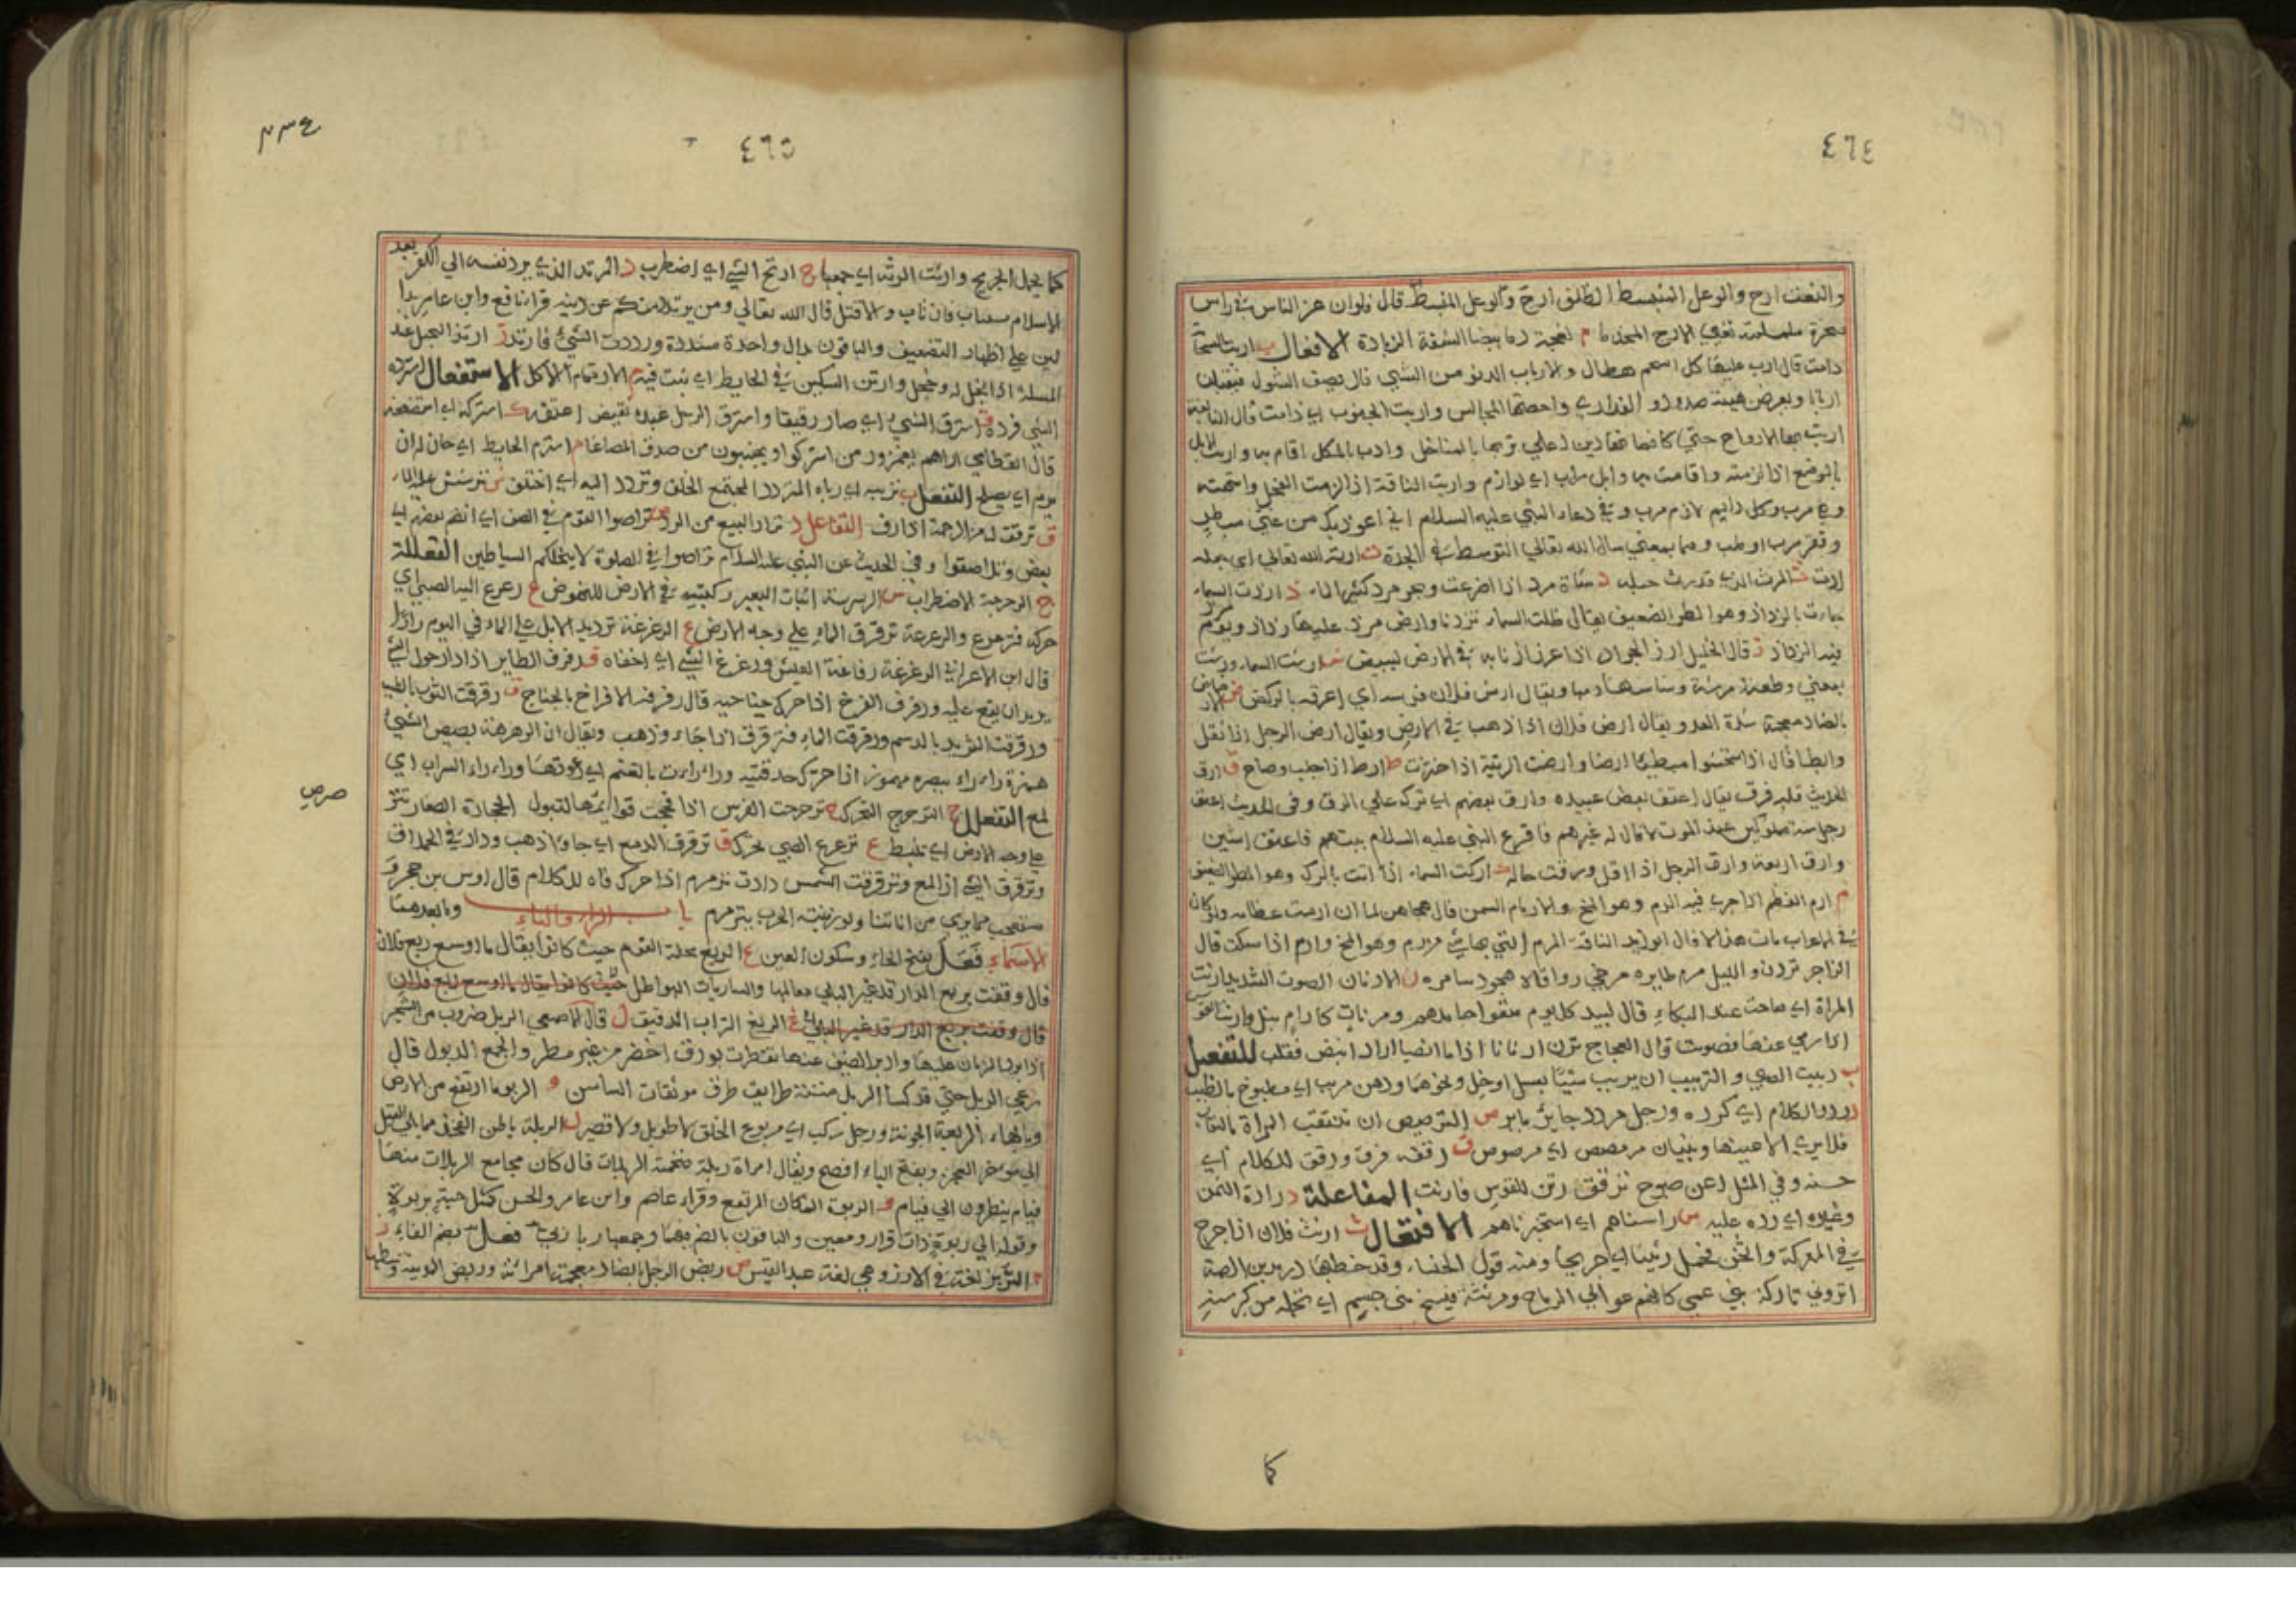 ٤٦٤
والنعت ارح والوعل المنبسط الظلف ارح وكوعل المنبسط قال فلوان عز الناس في راس
صخرة ململمة تعيي الارح المخدما م لعجة رما بيضا الشفة الزيادة الافعال ب اربت السحابة
دامت قال ارب عليها كل اسحم هطال والارباب الدنو من الشيي قال يصف الشول فيقبلن
اربابا ويعرض هيبة صدود العذاري واجهتها المجالس واربت الجنوب اي دامت قال النابغة
اربت بها الارواح حتي كانما تهادين اعلي تربها بالمناخل وارب بالمكان اقام بها واربت الابل
بالموضع اذا لزمته واقامت بها وابل مراب اي لوازم واربت الناقة اذا لزمت الفحل واحبته
وهي مرب وكل دايم لازم مرب وفي دعاء النبي عليه السلام اني اعوذ بك من غني مبطر
وفقر مرب او ملب وهما بمعني سال الله تعالي التوسط في الجدة ت ارته الله تعالي اي جعله
ارت ث المرث الذي قد رث حبله د شاة مرد اذا اضرعت وبحر مرد كثير الماء ذ ارذت السماء
جاءت بالرذاذ وهو المطر الضعيف يقال ظلت السماء ترذنا وارض مرذ عليها رذاذ ويوم مرذ
فيه الرذاذ ز قال الخليل ارز الجراد اذا غرز اذنابه في الارض ليبيض ش ارشت السماء ورشت
بمعني وطعنة مرشة ورشاشها دمها ويقال ارش فلان فرسه اي اعرقه بالركض ض الارضاض
بالضاد معجمة شدة العدو يقال ارض فلان اذا ذهب في الارض ويقال ارض الرجل اذا ثقل
وابطا قال اذا استحثوا مبطئا ارضا وارضت الرثية اذا خثرت ط ارط اذا جلب وصاح ق ارق
الحديث قلبه فرق يقال اعتق بعض عبيده وارق بعضهم اي تركه علي الرق وفي الحديث اعتق
رجل ستة مملوكين عند الموت لا مال له غيرهم فاقرع النبي عليه السلام بينهم فاعتق اثنين
وارق اربعة وارق الرجل اذا اقل ورقت حاله ك اركت السماء اذا اتت بالرك وهو المطر الضعيف
م ارم العظم اذا جري فيه الرم وهو المخ والارمام السمن قال هجاهن لما ان ارمت عظامه ولو كان
في الاعراب مات هزالا قال ابو زيد الناقة المرم التي بها شيء من رم وهو المخ وارم اذا سكت قال
الراجز تردن والليل مرم طايره مرخي رواقاه هجود سامره ن الارنان الصوت الشديد ارنت
المراة اي صاحت عند البكاء قال لبيد كل يوم منعوا حاملهم ومرنات كارام تبل وارنت القوس
اذا رمي عنها فصوتت قال العجاج ترن ارنانا اذا ما انضبا اراد انبض فقلب للتفعيل
ب رببت الصبي والتربيب ان يربب شيئا بعسل او خل ونحوهما ودهن مربب اي مطبوخ بالطيب
د ردد الكلام اي كرره ورجل مردد حاير باير ص الترصيص ان تنتقب المراة بالنقاب
فلا يري الا عيناها وبنيان مرصص اي مرصوص ق رققه فرق ورقق للكلام اي
حسنه وفي المثل اعن صبوح ترقق رنن للقوس فارنت المفاعلة د رادة الثمن
وغيره اي رده عليه س راسناهم اي استخبرناهم الافتعال ث ارتث فلان اذا جرح
في المعركة واثخن فحمل رثيثا اي جريحا ومنه قول الخنساء وقد خطبها دريد بن الصمة
اتروني تاركة بني عمي كانهم عوالي الرماح ومرتثة شيخ بني جشم اي تحمله من كبر سنه
كما
٤٦٥
٢٣٤
كما يحمل الجريح وارتث الرثة اي جمعها ج ارتج الشي اي اضطرب د المرتد الذي يرد نفسه الي الكفر بعد
الاسلام يستتاب فان تاب والا قتل قال الله تعالي ومن يرتدد منكم عن دينه قرا نافع وابن عامر بدا
لين علي اظهار التضعيف والباقون بدال واحدة مشددة ورددت الشيء فارتد ز ارتز البخيل عند
المسئلة اذا بخل له وخجل وارتز السكين في الحايط اي ثبت فيه م الارتمام الاكل الاستفعال د استرده
الشي فرده ق استرق الشيء اي صار رقيقا واسترق الرجل عبده نقيض اعتقه ك استركه اي استضعفه
قال القطامي اراهم يغمزون من استركوا ويجتنبون من صدق المصاعا م استرم الحايط اي حان له ان
يرم اي يصلح التفعل ب تربيه اي رباه المتردد المجتمع الخلق وتردد اليه اي اختلف ش ترشش عليه الماء
ق ترقق له من الرحمة اذا رق التفاعل د تراد البيع من الرد ص تراصوا القوم في الصف اي انضم بعضهم الي
بعض وتلاصقوا وفي الحديث عن النبي عليه السلام تراصوا في الصلوة لا يتخللكم الشياطين الفعللة
ج الرجرجة الاضطراب س الرسرسة اثبات البعير ركبتيه في الارض للنهوض ع رعرع اليه الصبي اي
حركه فترعرع والرعرعة ترقرق الماء علي وجه الارض غ الرغرغة ترديد الابل علي الماء في اليوم رارا
قال ابن الاعرابي الرغرغة رفاغة العيش ورغرغ الشي اي اخفاه ف رفرف الطاير اذا دار حول الشي
يريد ان يقع عليه ورفرف الفرخ اذا حرك جناحيه قال رفرفة الافراخ بالجناح ق رقرقت الثوب بالطيب
ورقرقت الثريد بالدسم ورقرقت الماء فترقرق اذا جاء وذهب ويقال ان الرهرهة بصيص الشيء
همزة راء راء ببصره مهموز اذا حرك حدقتيه وراراءت بالغنم اي دعوتها وراء راء السراب اي
لمع التفعلل ج الترجرج التحرك ح ترحرحت الفرس اذا فحجت قوايمها لتبول الحجارة الصغار تترضرض
علي وجه الارض اي تنبسط ع ترعرع الصبي تحرك ق ترقرق الدمع اي جاء وذهب ودار في الحملاق
وترقرق الشي اذا لمع وترقرقت الشمس دارت ترمرم اذا حرك فاه للكلام قال اوس بن حجر و
مستعجب مما يري من اناتنا ولو زبنته الحرب يترمرم باب الراء والباء وما بعدهما
الاسماء فعل بفتح الفاء وسكون العين ع الربع محلة القوم حيث كانوا يقال ما اوسع ربع فلان
قال وقفت بربع الدار قد غير البلي معالمها والساريات الهواطل حيث كانوا يقال ما اوسع ربع فلان
قال وقفت بربع الدار قد غير البلي غ الربغ التراب الدقيق ل قال الاصمعي الربل ضروب من الشجر
اذا برد الزمان عليها وادبر الصيف عنها تفطرت بورق اخضر من غير مطر والجمع الربول قال
رعي الربل حتي قد كسا الربل متنه طرايف طرف مونقات السانس و الربو ما ارتفع من الارض
وبالهاء الربعة الجونة ورجل ركب اي مربوع الخلق لا طويل ولا قصير ل الربلة باطن الفخذ مما يلي القبل
الي موخر العجز وبفتح الباء افصح ويقال امراة ربلة ضخمة الربلات قال كان مجامع الربلات منها
فيام ينظرون الي فيام و الربوة المكان المرتفع وقرا عاصم وابن عامر والحسن كمثل جنة بربوة
وقوله الي ربوة ذات قرار ومعين والباقون بالضم فيهما وجمعها ربا ربي فعل بضم الفاء
ز الرنز لغة في الارز وهي لغة عبد القيس ض ربض الرجل بالضاد معجمة امراته وربض المدينة وسطها